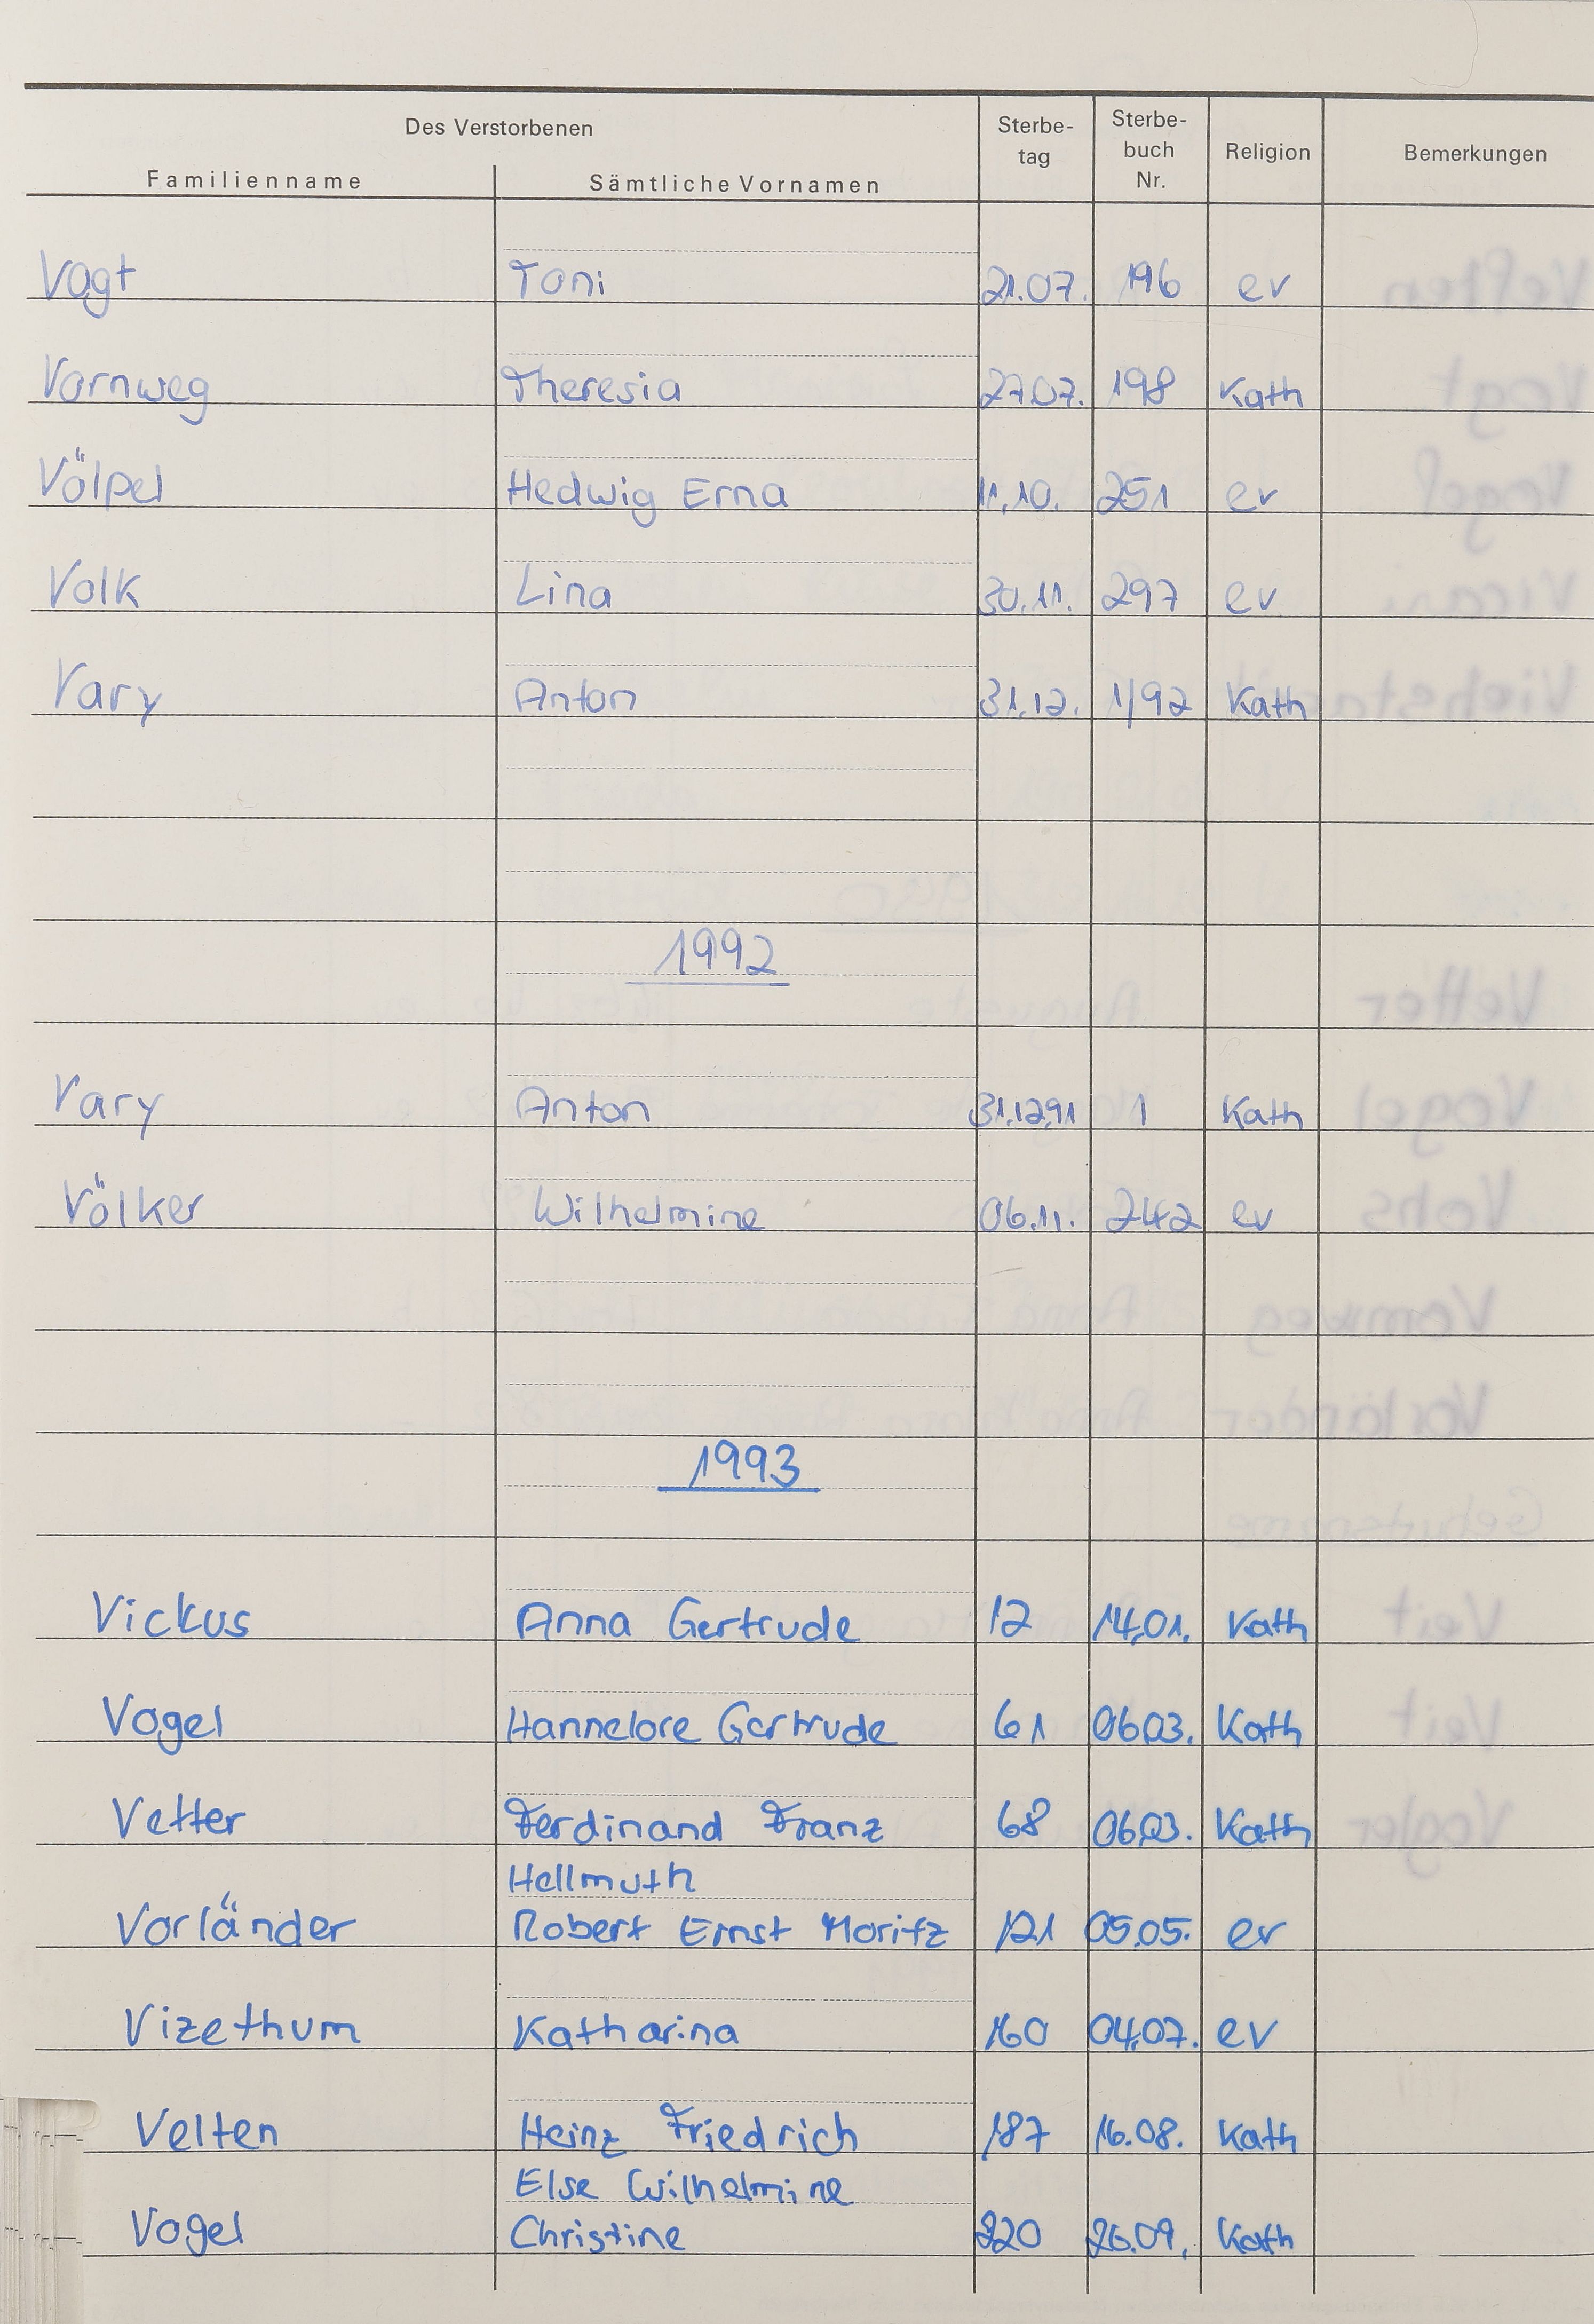 Des Verstorbenen
Familienname Sämtliche Vornamen Sterbe-tag Sterbe-buch Nr. Religion Bemerkungen
Vogt Toni 21.07. 196 ev
Vornweg Theresia 27.07. 198 Kath
Völpel Hedwig Erna 11.10. 251 ev
Volk Lina 30.11. 297 ev
Vary Anton 31.12. 1/92 Kath
1992
Vary Anton 31.12.91 1 Kath
Völker Wilhelmine 06.11. 242 ev
1993
Vickus Anna Gertrude 12 14.01. Kath
Vogel Hannelore Gertrude 61 06.03. Kath
Vetter Ferdinand Franz 68 06.03. Kath
Hellmuth
Vorländer Robert Ernst Moritz 121 05.05. ev
Vizethum Katharina 160 04.07. ev
Velten Heinz Friedrich 187 16.08. Kath
Else Wilhelmine
Vogel Christine 220 26.09. Kath